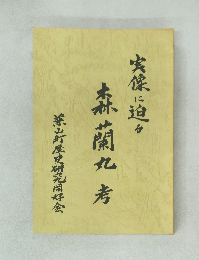 実像に迫る
森蘭丸考
葉山町歴史研究同好会